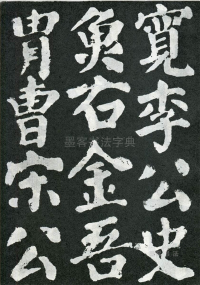 寬李公史
魚右金吾
胄曹宋公
墨客书法字典